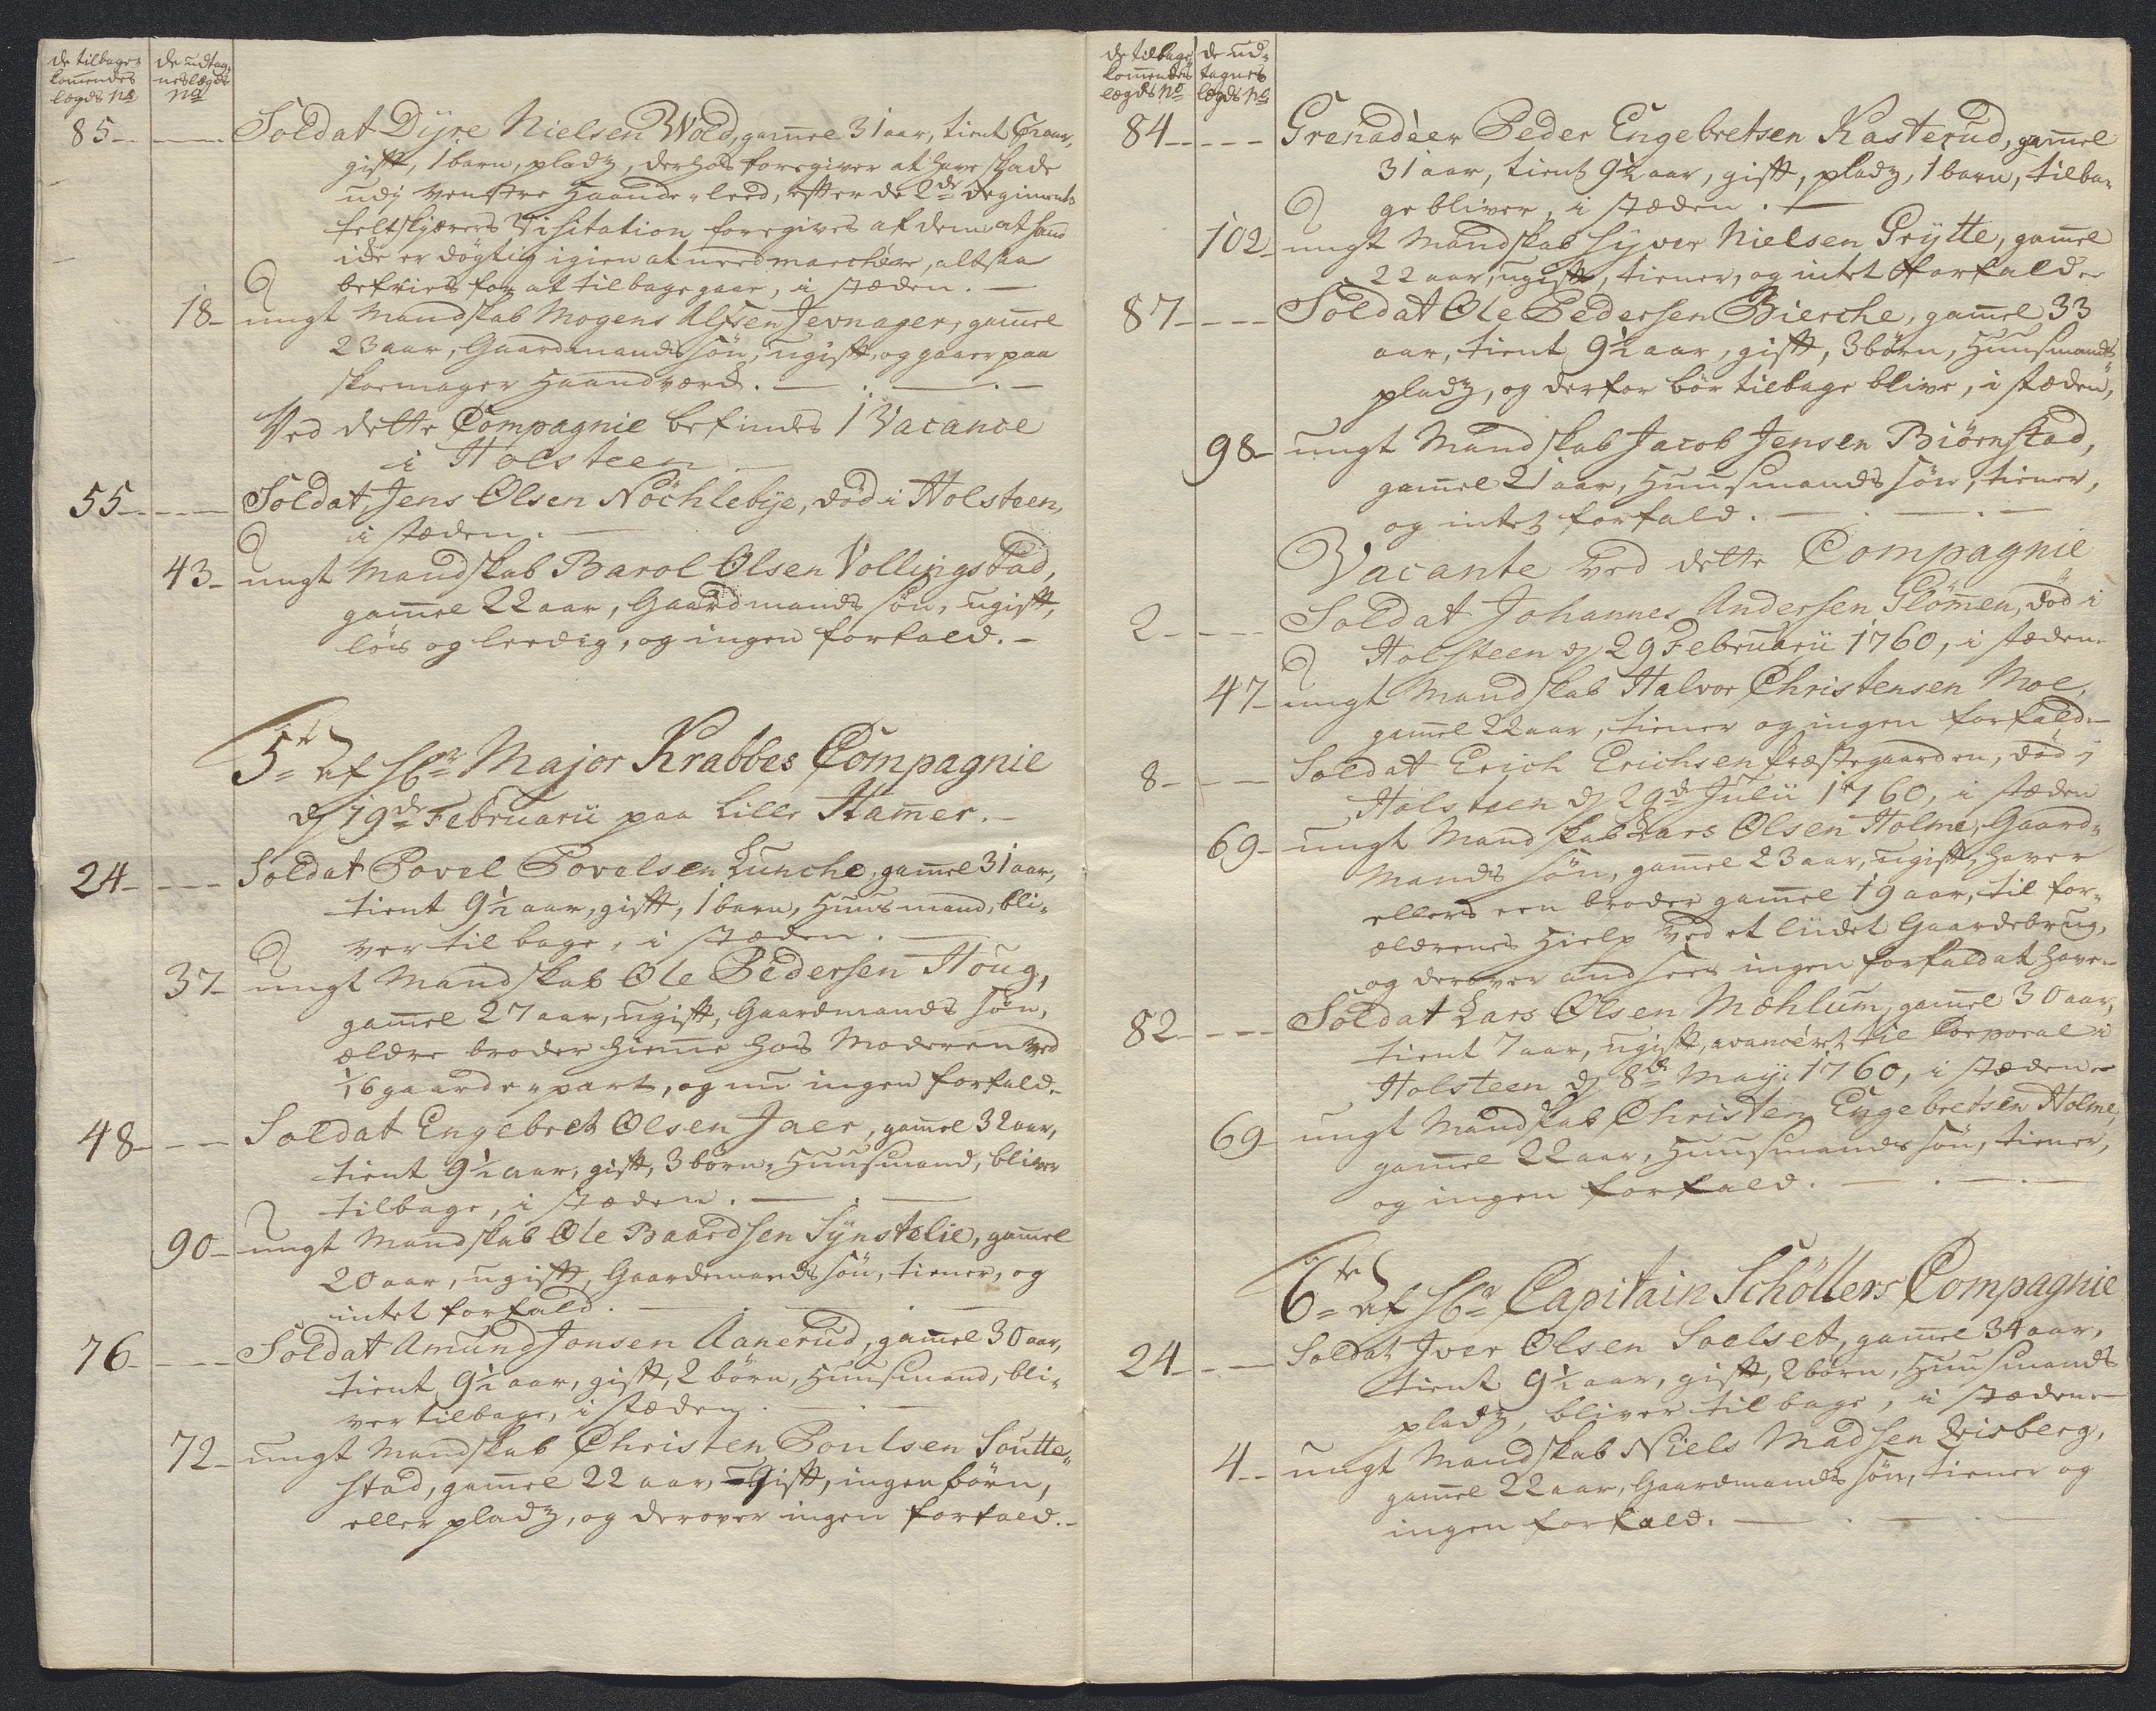 de tilbage= de udtag=
komendes nes lægds
lægds No No
85 Soldat Dyre Nielsen Wold, gamel 31 aar, tient aar,
gift, 1 barn, pladz, derhos foregiver at have skade
udj venstre Haande-leed, efter de 2de Regiments
feltskjærers Visitation foregives af dem at hand
ide er dögtig igien at needmarchére, altsaa
befries for at tilbagegaae, i stæden.
18 ungt Mandskab Mogens Alfsen Jevnager, gamel
23 aar, Gaardmands sön, ugift, og gaaer paa
skoemager Haandværk.
Ved dette Compagnie befindes 1 Vacance
i Holsteen
55 Soldat Jens Olsen Nöchlebye, död i Holsteen,
i stæden.
43 ungt Mandskab Barol Olsen Vollingstad,
gamel 22 aar, Gaardmands sön, ugift,
löis og leedig, og ingen forfald.
5te Af Hr Major Krabbes Compagnie
d 19de Februarii paa Lille Hamer.
24 Soldat Povel Povelsen Lunche, gamel 31 aar,
tient 9½ aar, gift, 1 barn, Huusmand, bli=
ver tilbage, i stæden.
37 ungt Mandskab Ole Pedersen Houg,
gamel 27 aar, ugift, Gaardmands sön,
ældre broder hieme hos Moderen ved
1/6 gaarde-part, og nu ingen forfald.
48 Soldat Engebret Olsen Jaer, gamel 32 aar,
tient 9½ aar, gift, 3 börn, Huusmand, bliver
tilbage, i stæden.
90 ungt Mandskab Ole Baardsen Synstelie, gamel
20 aar, ugift, Gaardemands sön, tiener, og
intet forfald.
76 Soldat Amund Jonsen Aanerud, gamel 30 aar,
tient 9½ aar, gift, 2 börn, Huusmand, bli=
ver tilbage, i stæden
72 ungt Mandskab Christen Poulsen Soutte=
stad, gamel 22 aar gift, ingen börn,
eller pladz, og derover ingen forfald.
de tilbage de ud=
komendes tagnes
lægds No lægds No
84 Grenadéer Peder Engebretsen Kasterud, gamel
31 aar, tient 9½ aar, gift, pladz, 1 barn, tilba=
ge bliver, i stæden.
102 ungt Mandskab Syver Nielsen Prytte, gamel
22 aar, ugift, tiener, og intet forfald
87 Soldat Ole Pedersen Bierche, gamel 33
aar, tient 9½ aar, gift, 3 börn, Huusmands
pladz, og derfor bör tilbage blive, i stæden,
98 ungt Mandskab Jacob Jensen Biörnstad,
gamel 21 aar, Huusmands sön, tiener,
og intet forfald.
Vacante ved dette Compagnie
2 Soldat Johannes Andersen Glömen, död i
Holsteen d 29 Februarii 1760, i stæden
47 ungt Mandskab Halvor Christensen Moe,
gamel 22 aar, tiener og ingen forfald
8 Soldat Erich Erichsen Præstegaarden, död i
Holsteen d 29de Julii 1760, i stæden
69 ungt Mandskab Lars Olsen Holme, Gaard=
mands sön, gamel 23 aar, ugift, haver
ellers een broder gamel 19 aar, til for=
ældrenes Hielp ved et lidet Gaardebrug,
og derover andsees ingen forfald at have
82 Soldat Lars Olsen Mæhlum, gamel 30 aar,
tient 7 aar, ugift, avancéret til Corporal i
Holsteen d 8de Maji 1760, i stæden
69 ungt Mandskab Christen Engebretsen Holme,
gamel 22 aar, Huusmands sön, tiener,
og ingen forfald.
6te Af Hr Capitain Schöllers Compagnie
24 Soldat Iver Olsen Soelset, gamel 34 aar,
tient 9½ aar, gift, 2 börn, Huusmands
pladz, bliver tilbage, i stæden
4 ungt Mandskab Niels Madsen Risberg,
gamel 22 aar, Gaardmands sön, tiener og
ingen forfald.